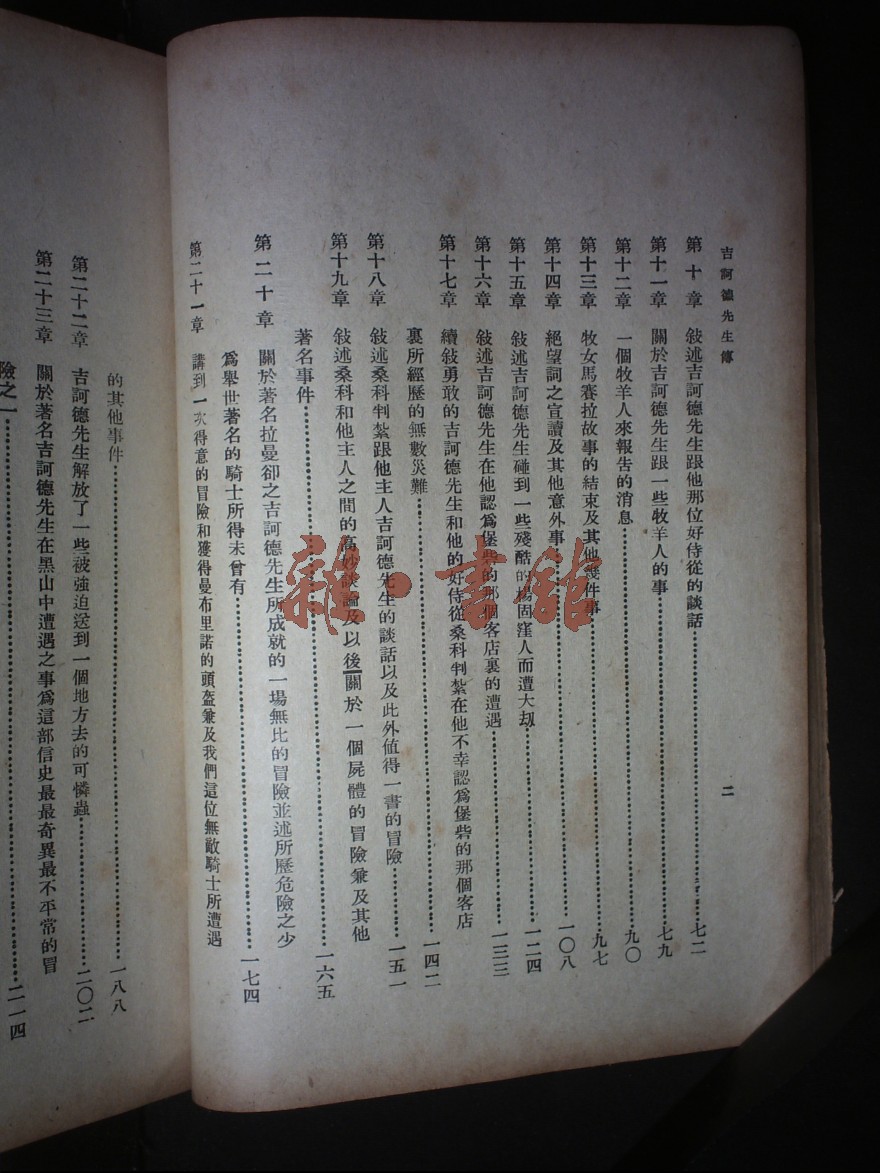 吉訶德先生傳
二
第十章 敍述吉訶德先生跟他那位好侍從的談話……七二
第十一章 關於吉訶德先生跟一些牧羊人的事……七九
第十二章 一個牧羊人來報告的消息……九〇
第十三章 牧女馬賽拉故事的結束及其他幾件事……九七
第十四章 絕望詞之宣讀及其他意外事……一〇八
第十五章 敍述吉訶德先生碰到一些殘酷的楊固窪人而遭大刼……一二四
第十六章 敍述吉訶德先生在他認爲堡砦的那個客店裏的遭遇……一三三
第十七章 續敍勇敢的吉訶德先生和他的好侍從桑科判紮在他不幸認爲堡砦的那個客店
裏所經歷的無數災難……一四二
第十八章 敍述桑科判紮跟他主人吉訶德先生的談話以及此外值得一書的冒險……一五一
第十九章 敍述桑科和他主人之間的高妙談論及以後關於一個屍體的冒險兼及其他
著名事件……一六五
第二十章 關於著名拉曼卻之吉訶德先生所成就的一場無比的冒險並述所歷危險之少
爲舉世著名的騎士所得未曾有……一七四
第二十一章 講到一次得意的冒險和獲得曼布里諾的頭盔兼及我們這位無敵騎士所遭遇
的其他事件……一八八
第二十二章 吉訶德先生解放了一些被強迫送到一個地方去的可憐蟲……二〇二
第二十三章 關於著名吉訶德先生在黑山中遭遇之事爲這部信史最最奇異最不平常的冒
險之一……二一四
雜·書館